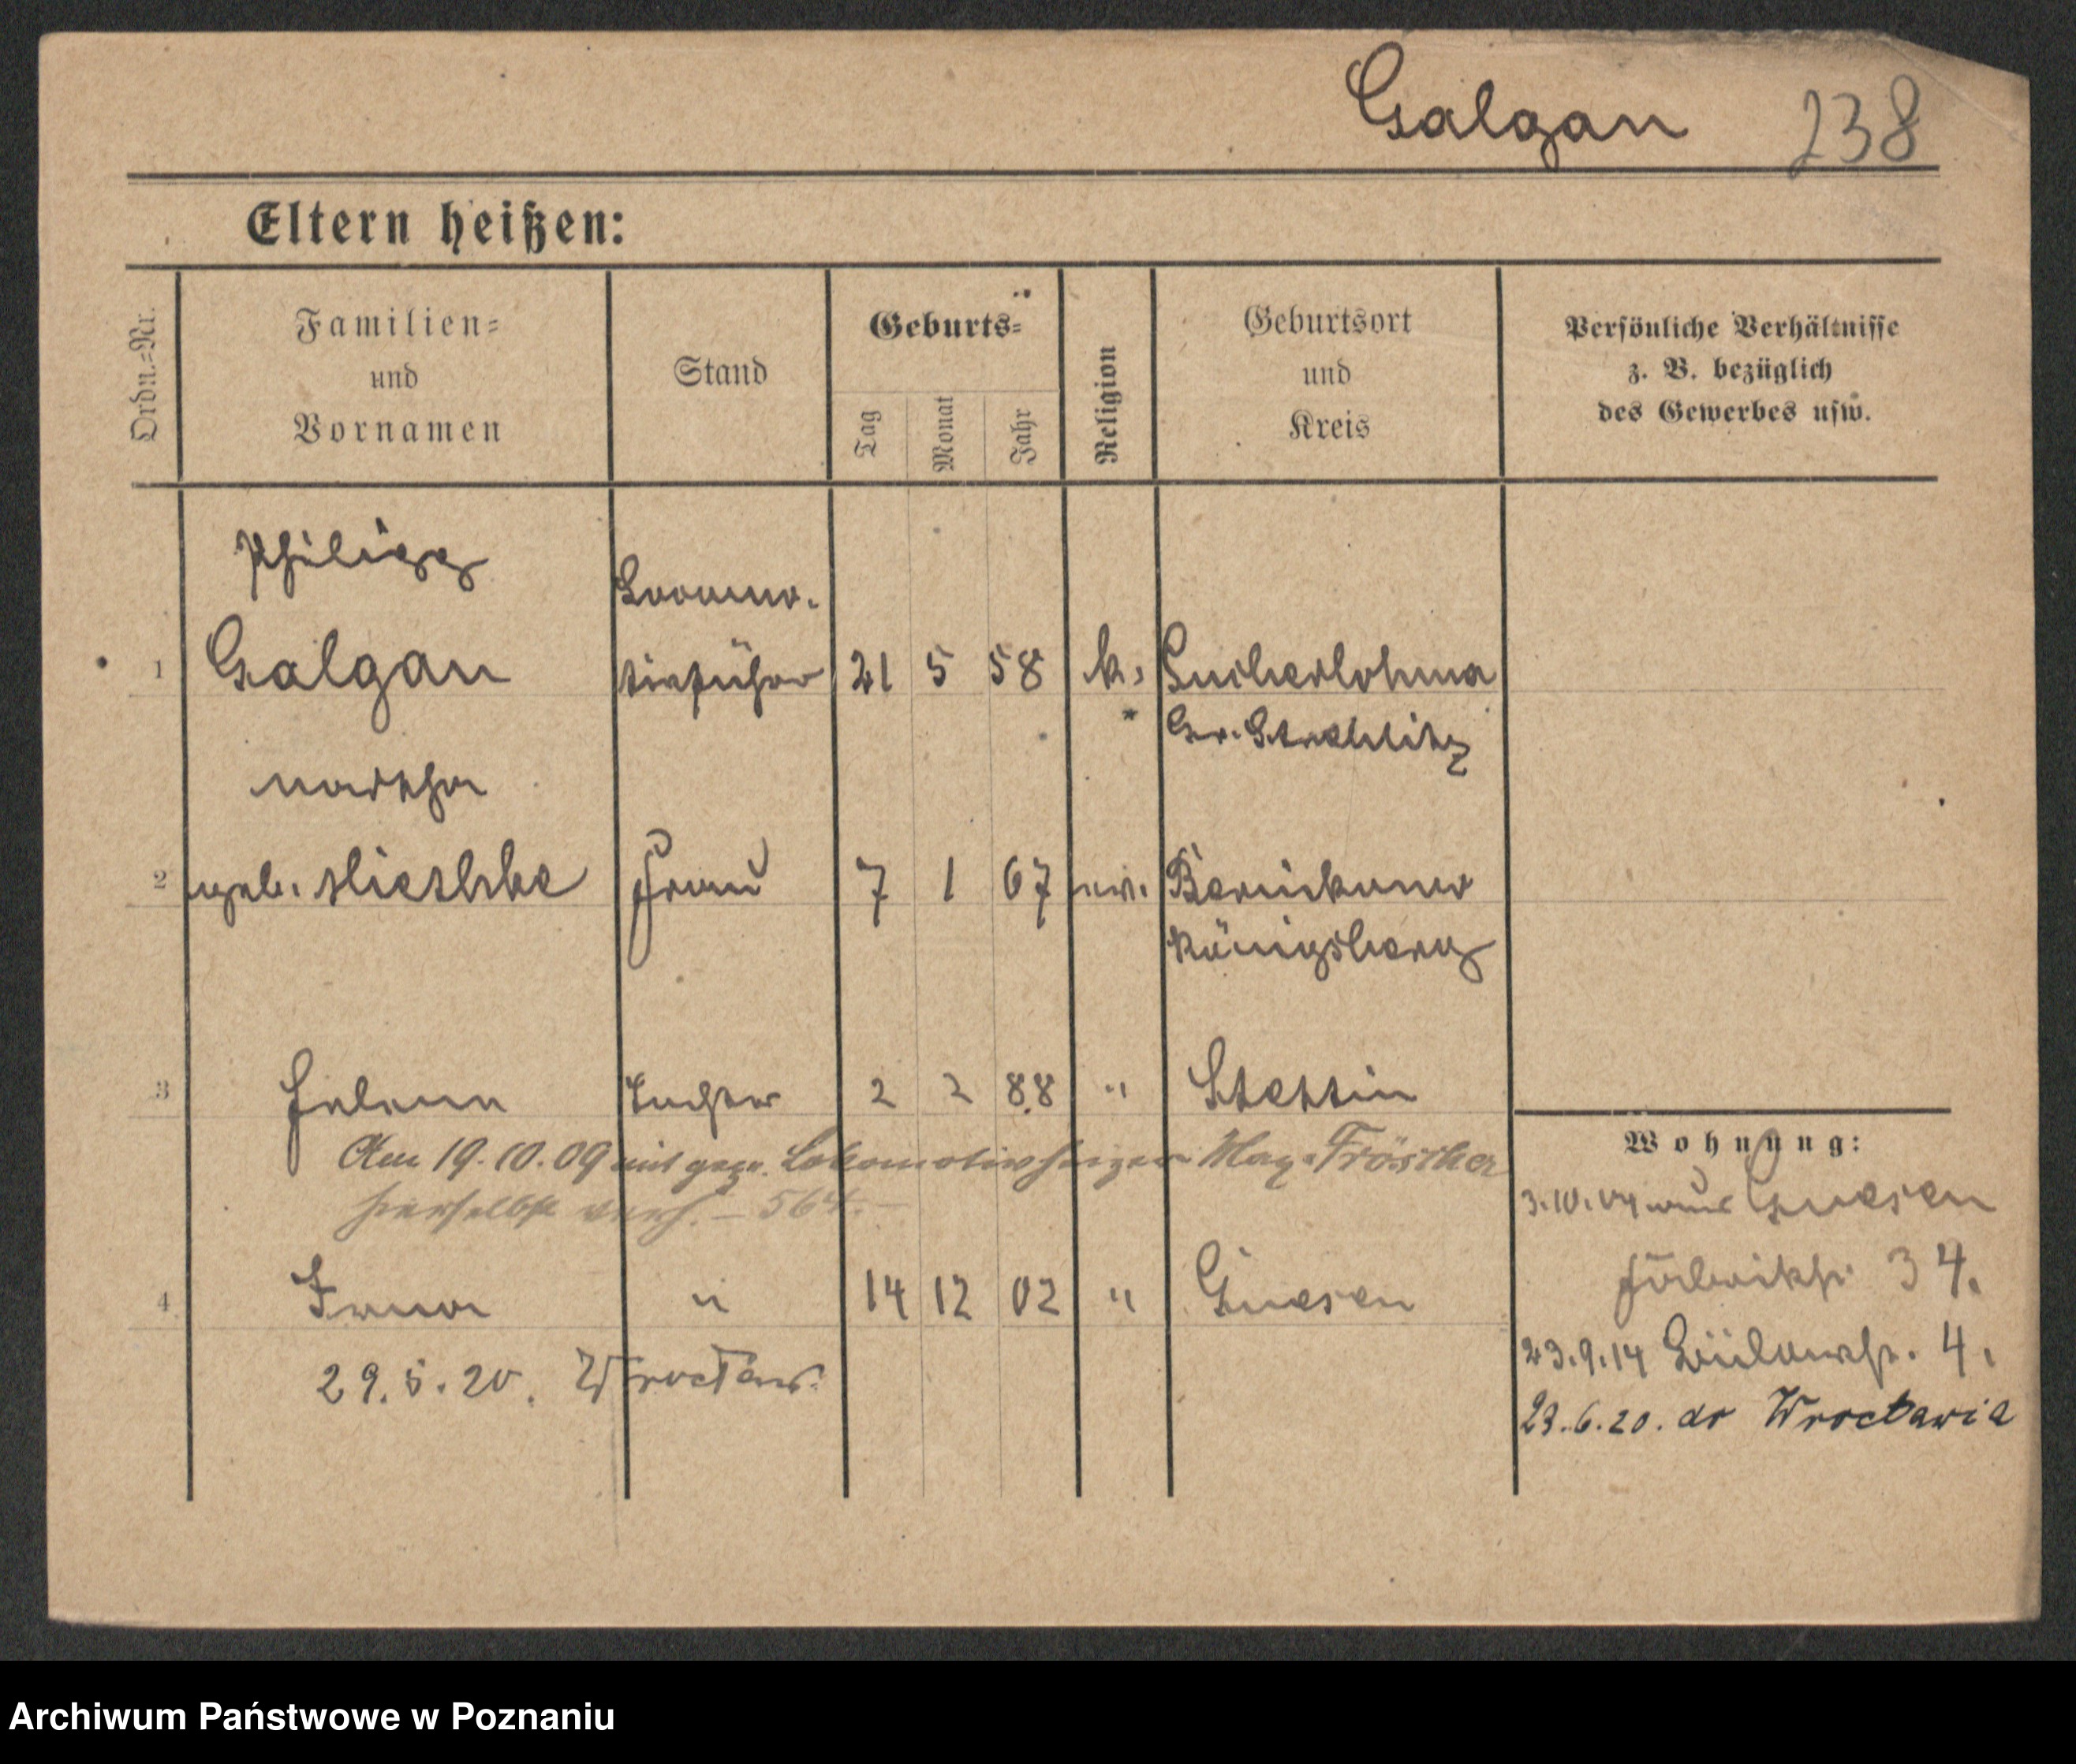 Galgan 238
Eltern heißen:
Ordn.=Nr.
Familien=
und
Vornamen
Stand
Geburts=
Tag
Monat
Jahr
Religion
Geburtsort
und
Kreis
Persönliche Verhältnisse
z. B. bezüglich
des Gewerbes usw.
Philipp
Locomo-
1 Galgan tivführer 21 5 58 k.
Gr. Strehlitz
Martha
2 geb. Frau 7 1 67 ev.
Königsberg
3 Helene Tochter 2 2 88 " Stettin
Am 19.10.09 mit gepr. Lokomotivheizer Max
hierselbst verh. – 564. –
4 Erna " 14 12 02 " Gnesen
29.5.20. Wrocław.
Wohnung:
3.10.04 aus Gnesen
34.
23.9.14 Bülowstr. 4.
23.6.20. do Wrocławia
Archiwum Państwowe w Poznaniu